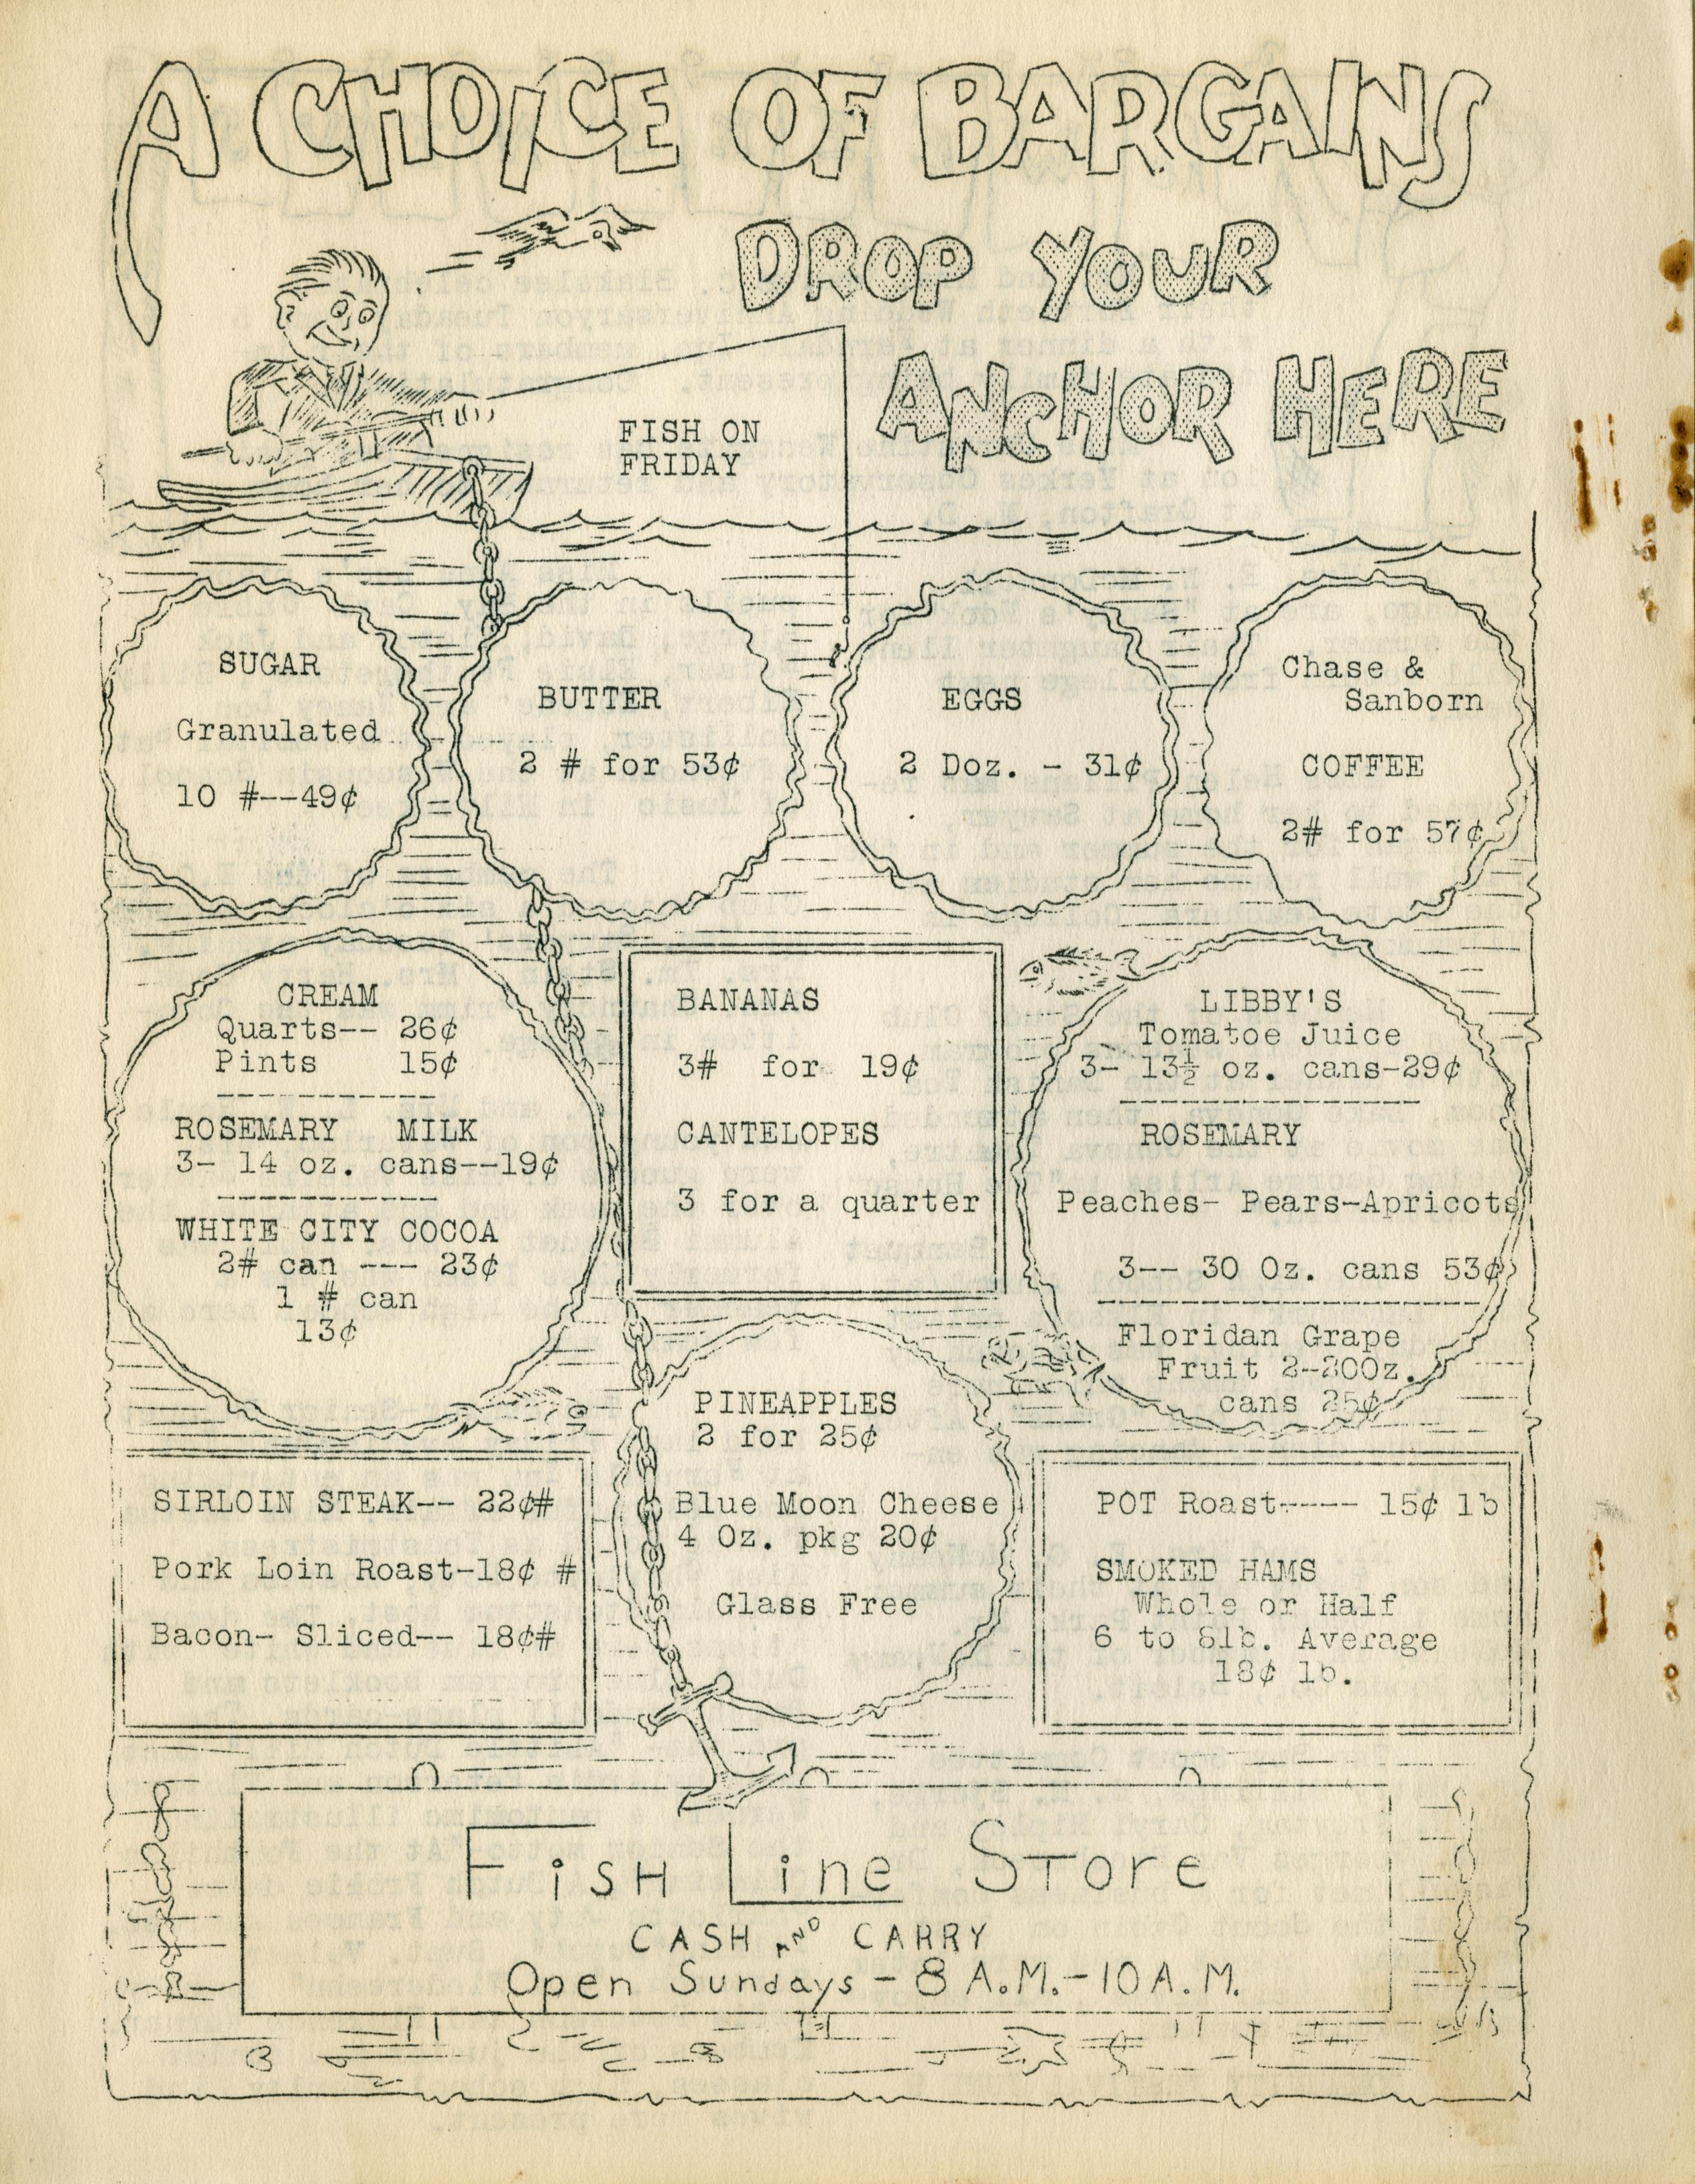 A CHOICE OF BARGAINS
DROP YOUR
ANCHOR HERE
FISH ON
FRIDAY
SUGAR
Granulated
10 #--49¢
BUTTER
2 # for 53¢
EGGS
2 Doz. - 31¢
Chase &
Sanborn
COFFEE
2# for 57¢
CREAM
Quarts-- 26¢
Pints 15¢
ROSEMARY MILK
3- 14 oz. cans--19¢
WHITE CITY COCOA
2# can --- 23¢
1 # can
13¢
BANANAS
3# for 19¢
CANTELOPES
3 for a quarter
LIBBY'S
Tomatoe Juice
3- 13½ oz. cans-29¢
ROSEMARY
Peaches- Pears-Apricots
3-- 30 Oz. cans 53¢
Floridan Grape
Fruit 2-20Oz.
cans 25¢
SIRLOIN STEAK-- 22¢#
Pork Loin Roast-18¢ #
Bacon- Sliced-- 18¢#
PINEAPPLES
2 for 25¢
Blue Moon Cheese
4 Oz. pkg 20¢
Glass Free
POT Roast----- 15¢ lb
SMOKED HAMS
Whole or Half
6 to 8lb. Average
18¢ lb.
Fish Line Store
CASH AND CARRY
Open Sundays - 8 A.M.-10 A.M.